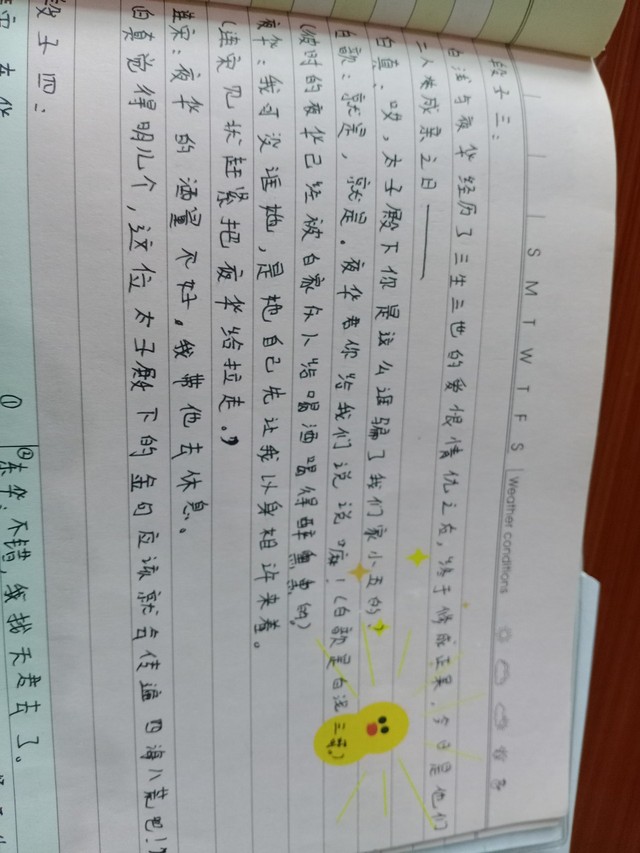 S M T W T F S Weather conditions
段子三：
白浅与夜华经历了三生三世的爱恨情仇之后，终于修成正果，今日是他们
二人大成亲之日——
白真：哎，太子殿下你是这么诓骗了我们家小五的？
白颀：就是，就是。夜华君你给我们说说嘛！（白颀是白浅三哥。）
（彼时的夜华已经被白家众人给喝酒喝得醉熏熏的。）
夜华：我可没诓她，是她自己先让我以身相许来着。
（连宋见状赶紧把夜华给拉走。）
连宋：夜华的酒量不好。我带他去休息。
白真觉得明儿个，这位太子殿下的金句应该就会传遍四海八荒吧！
段子四：
①
②东华：不错，我找天君去了。